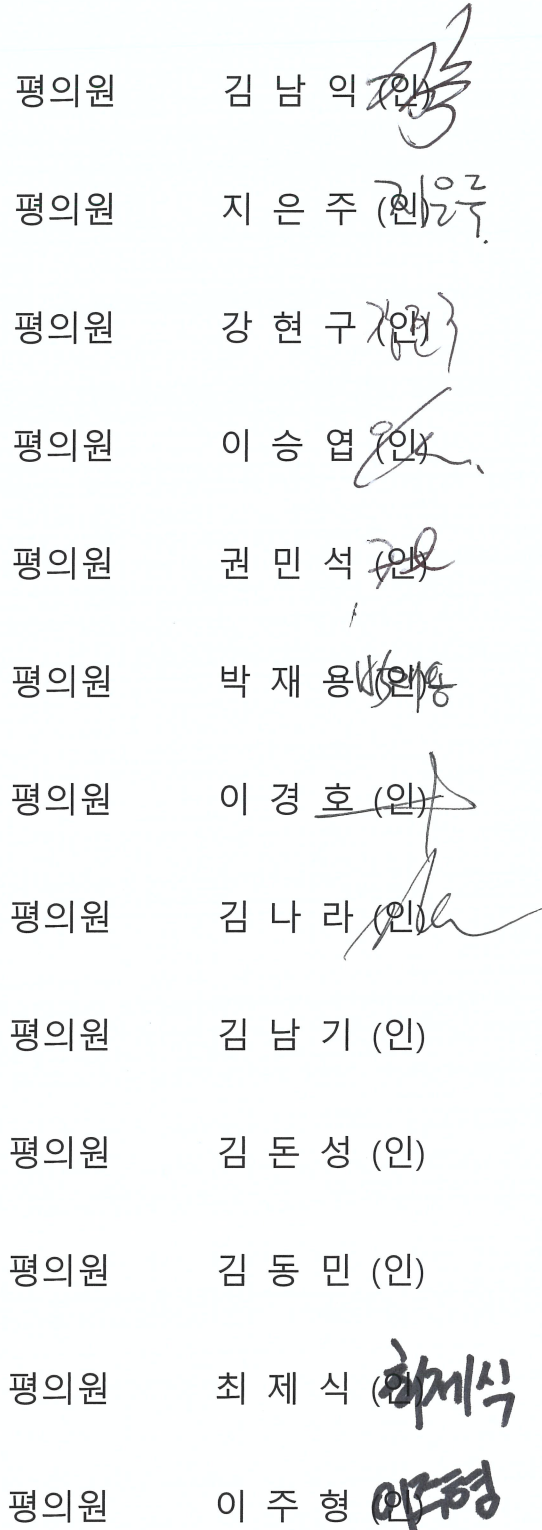 평의원 김 남 익 (인)
평의원 지 은 주 (인) 지은주
평의원 강 현 구 (인) 강현구
평의원 이 승 엽 (인)
평의원 권 민 석 (인)
평의원 박 재 용 (인) 박재용
평의원 이 경 호 (인)
평의원 김 나 라 (인)
평의원 김 남 기 (인)
평의원 김 돈 성 (인)
평의원 김 동 민 (인)
평의원 최 제 식 (인) 최제식
평의원 이 주 형 (인) 이주형